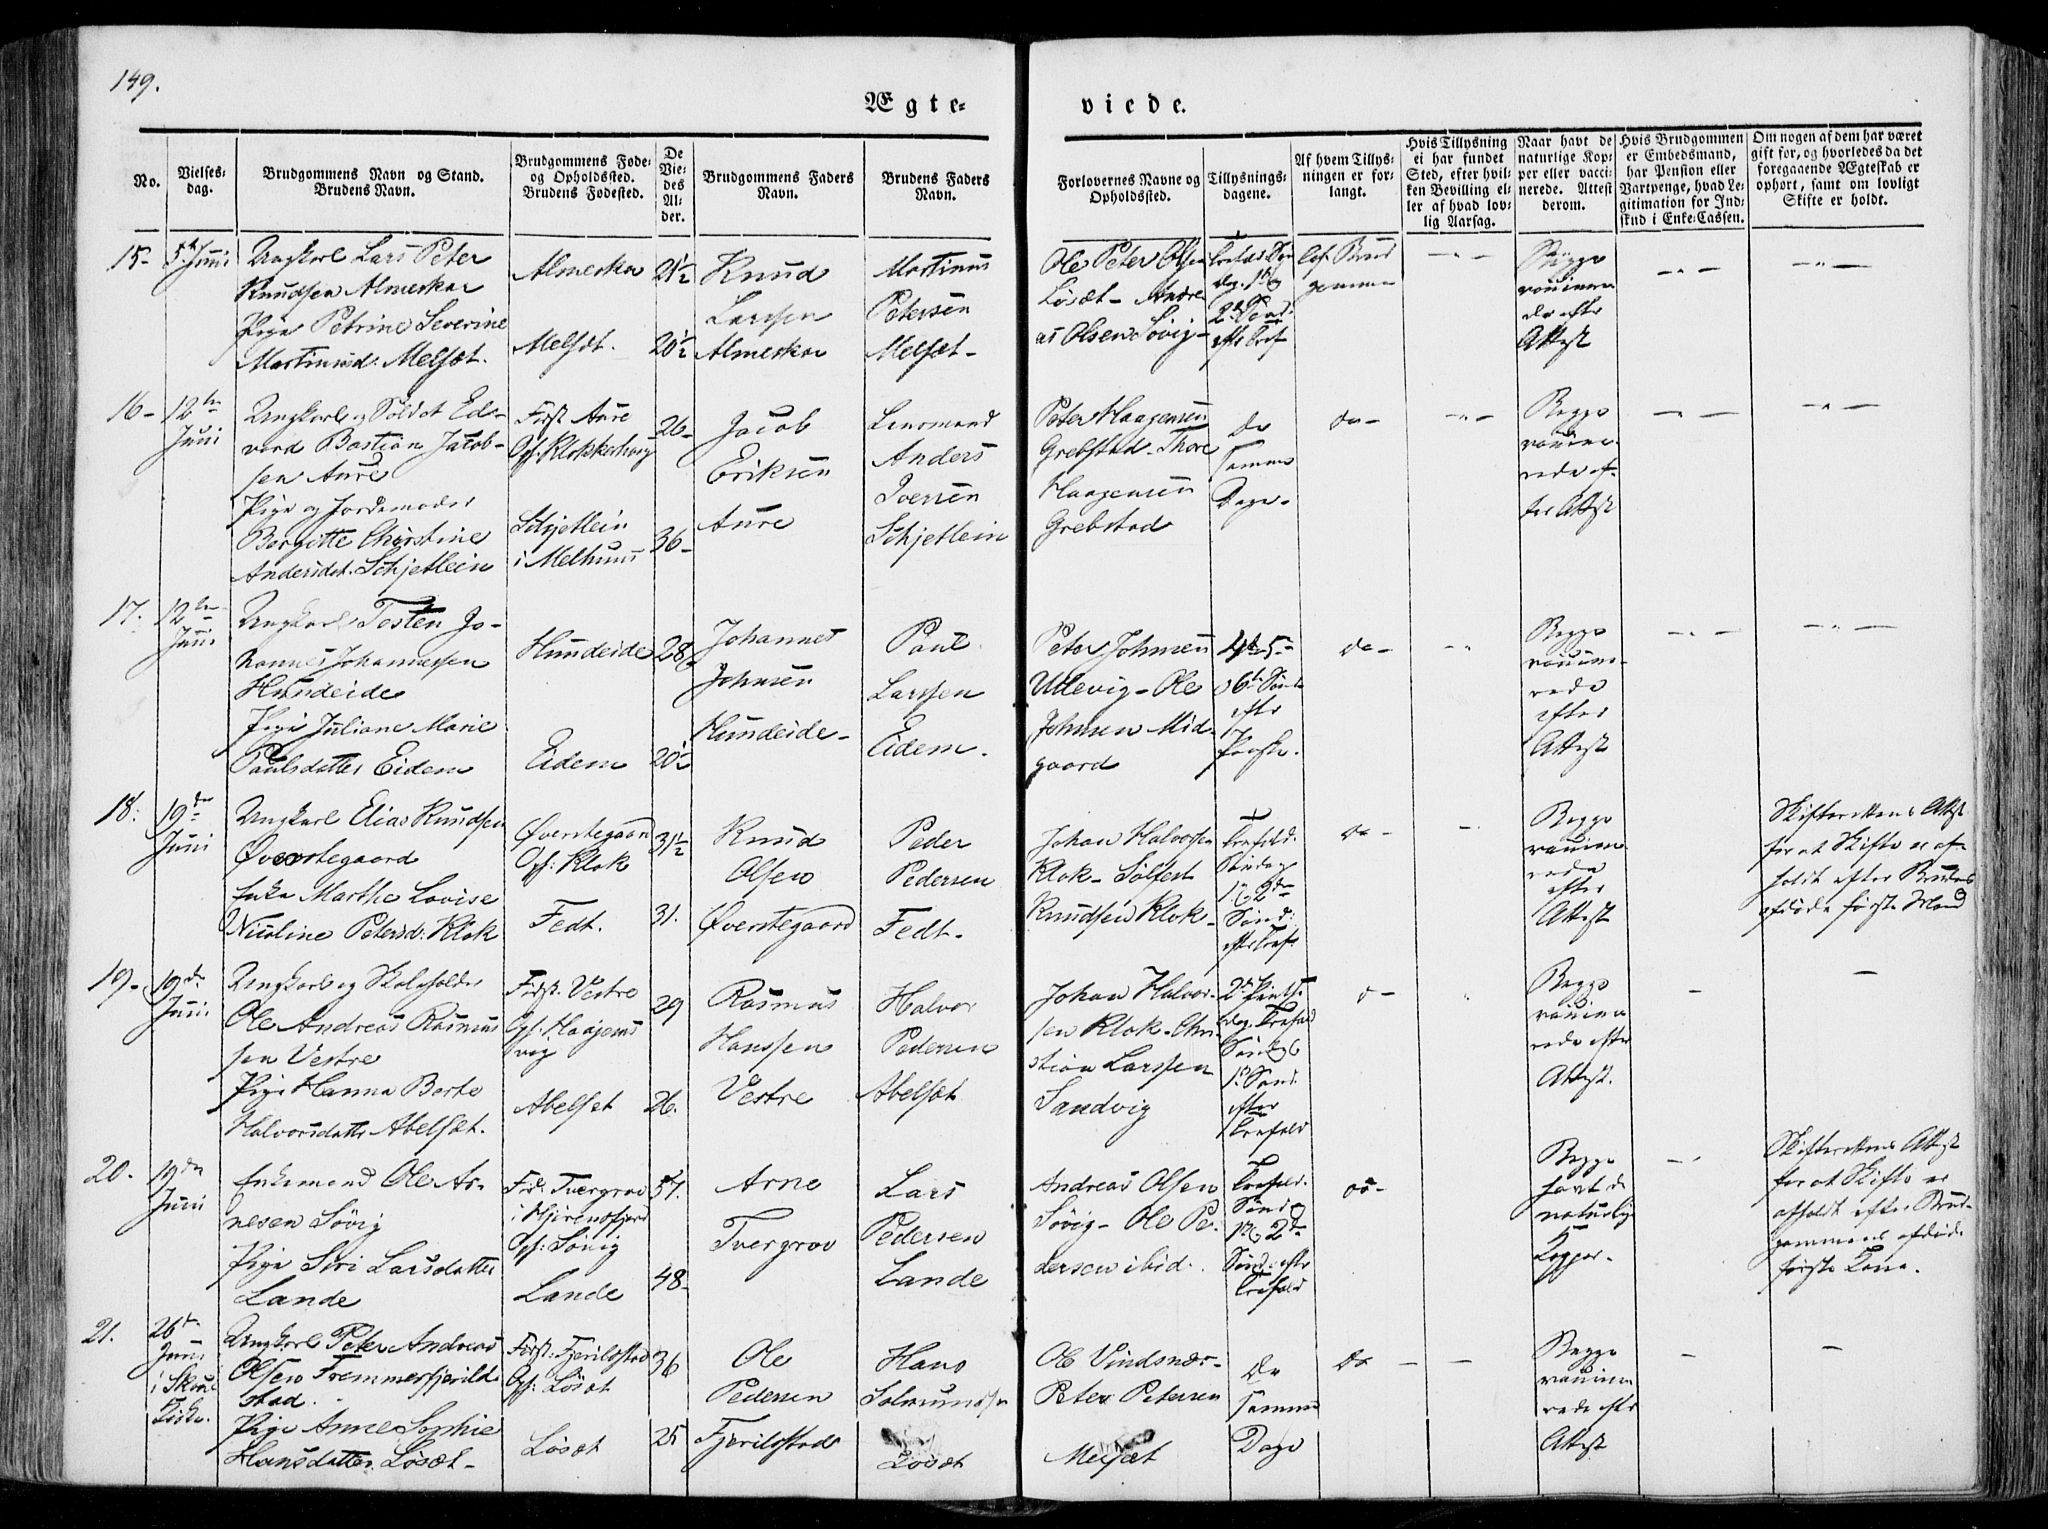 149.
Ægte-
viede.
No.
Vielses-
dag.
Brudgommens Navn og Stand.
Brudens Navn.
Brudgommens Føde-
og Opholdssted.
Brudens Fødested.
De
Vie-
des
Al-
der.
Brudgommens Faders
Navn.
Brudens Faders
Navn.
Forlovernes Navne og
Opholdssted.
Tillysnings-
dagene.
Af hvem Tillys-
ningen er for-
langt.
Hvis Tillysning
ei har fundet
Sted, efter hvil-
ken Bevilling el-
ler af hvad lov-
lig Aarsag.
Naar havt de
naturlige Kop-
per eller vacci-
nerede. Attest
derom.
Hvis Brudgommen
er Embedsmand,
har Pension eller
Vartpenge, hvad Le-
gitimation for Ind-
skud i Enke-Cassen.
Om nogen af dem har været
gift før, og hvorledes da det
foregaaende Ægteskab er
ophørt, samt om lovligt
Skifte er holdt.
15-
5te Juni
Ungkarl Lars Peter
Knudsen Almeskar
Pige Petrine Severine
Martinusd. Melsæt.
Almeskar
Melsæt.
21½
20½
Knud
Larssen
Almeskar
Martinus
Petersen
Melsæt-
Ole Peter Olsen
Løsæt- Andre
as Olsen Søvig-
Trefold. Søn
dag. 1ste og
2den Sønd.
eft. Tref.
af Brud
gommen
Begge
vaccinere
de efter
Attest
16-
12te
Juni
Ungkarl og Soldat Ed-
vard Bastian Jacob-
sen Aure
Pige og Jordemoder
Bergitte Christine
Andersdt. Schjetlein
Født Aure
Opf. Klokkerhoug
Schjetlein
i Melhuus
26-
36-
Jacob
Eriksen
Aure
Lensmand
Anders
Iversen
Schjetlein
Peter Haagensen
Grebstad- Thore
Haagensen
Grebstad
de
samme
Dage-
do-
Begge
vaccine-
rede ef-
ter Attest
17.
12te
Juni
Ungkarl Tosten Jo-
hannes Johannessen
Hundeide
Pige Juliane Marie
Paulsdatter Eidem
Hundeide
Eidem
28-
20½
Johannes
Johnsen
Hundeide-
Paul
Larssen
Eidem.
Peter Johnsen
Utlevig- Ole
Johnsen Mid-
gaard
4de 5te
og 6te Sønd.
efter
Paaske.
do-
Begge
vaccine-
rede
efter
Attest
18.
19de
Juni
Ungkarl Elias Knudsen
Øverstegaard
Enke Marthe Lovise
Nicoline Petersd: Klok
Øverstegaard
Opf: Klok
Fedt.
31½
31.
Knud
Olsen
Øverstegaard
Peder
Pedersen
Fedt.
Johan Halvorsen
Klok- Sølfest
Knudsen Klok-
Trefold.
Søndag
1ste & 2den
Sønd:
eft. Tref.
do-
Begge
vaccine
rede
efter
Attest
Skifterettens Attest
for at Skifte er af-
holdt efter Brudens
afdøde første Mand
19-
19de
Juni
Ungkarl og Skoleholder
Ole Andreas Rasmus
sen Vestre
Pige Hanna Berte
Halvorsdatter Abelsæt.
Født. Vestre
Opf. Haagens
vig
Abelsæt
29
26.
Rasmus
Hanssen
Vestre
Halvor
Pedersen
Abelsæt
Johan Halvor-
sen Klok- Chri
stian Larssen
Sandvig
2den Pintse
dag. Trefold
Søndag &
1ste Sønd.
efter
Trefold
Begge
vaccine
rede efter
Attest.
20.
19de
Juni
Enkemand Ole Ar-
nesen Søvig
Pige Siri Larsdatter
Lande
Fød: Tvergrov
i Hjørensfjord
Opf: Søvig
Lande
57.
48-
Arne
Tvergrov
Lars
Pedersen
Lande
Andreas Olsen
Søvig- Ole Pe-
dersen ibid.
Trefold.
Sønd.
1ste & 2den
Sønd. efter
Trefold
do-
Begge
havt de
naturlige
Kopper-
Skifterettens Attest
for at Skifte er
afholdt efter Brud-
gommens afdøde
første Kone.
21.
26de
Juni
i Skoue
Kirke.
Ungkarl Peter Andreas
Olsen Fremmerfjerild-
stad.
Pige Anne Sophie
Hansdatter Løsæt-
Født: Fjerildstad
Opf. Løsæt
Løsæt
36
25
Ole
Pedersen
Fjerildstad
Hans
Salmundsen
Løsæt
Ole Vindsnæs-
Peter Petersen
Melsæt
de
samme
Dage
do
Begge
vaccine
rede efter
Attest